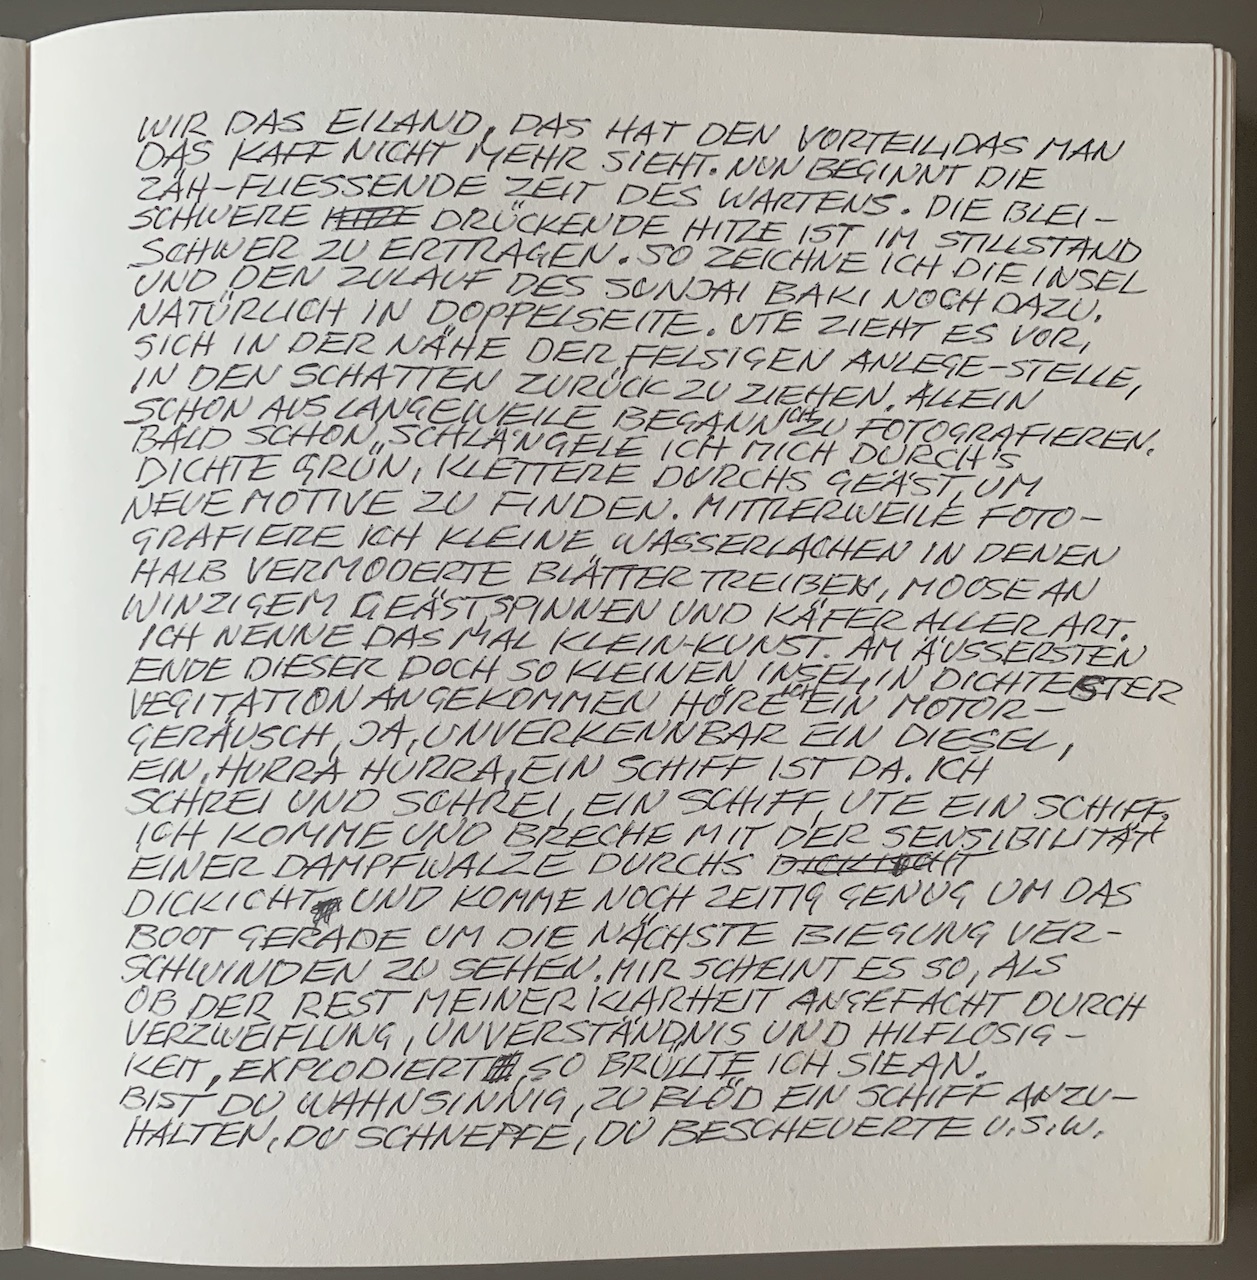 WIR DAS EILAND, DAS HAT DEN VORTEIL, DAS MAN
DAS KAFF NICHT MEHR SIEHT. NUN BEGINNT DIE
ZÄH-FLIESSENDE ZEIT DES WARTENS. DIE BLEI-
SCHWERE HITZE DRÜCKENDE HITZE IST IM STILLSTAND
SCHWER ZU ERTRAGEN. SO ZEICHNE ICH DIE INSEL
UND DEN ZULAUF DES SUNJAI BAKI NOCH DAZU.
NATÜRLICH IN DOPPELSEITE. UTE ZIEHT ES VOR,
SICH IN DER NÄHE DER FELSIGEN ANLEGE-STELLE,
IN DEN SCHATTEN ZURÜCK ZU ZIEHEN. ALLEIN
SCHON AUS LANGEWEILE BEGANN ICH ZU FOTOGRAFIEREN.
BALD SCHON, SCHLÄNGELE ICH MICH DURCH'S
DICHTE GRÜN, KLETTERE DURCHS GEÄST, UM
NEUE MOTIVE ZU FINDEN. MITTLERWEILE FOTO-
GRAFIERE ICH KLEINE WASSERLACHEN IN DENEN
HALB VERMODERTE BLÄTTER TREIBEN, MOOSE AN
WINZIGEM GEÄST, SPINNEN UND KÄFER ALLER ART.
ICH NENNE DAS MAL KLEIN-KUNST. AM ÄUSSERSTEN
ENDE DIESER DOCH SO KLEINEN INSEL, IN DICHTESTER
VEGITATION ANGEKOMMEN HÖRE ICH EIN MOTOR-
GERÄUSCH, JA, UNVERKENNBAR EIN DIESEL,
EIN, HURRA HURRA, EIN SCHIFF IST DA. ICH
SCHREI UND SCHREI, EIN SCHIFF, UTE EIN SCHIFF.
ICH KOMME UND BRECHE MIT DER SENSIBILITÄT
EINER DAMPFWALZE DURCHS DICKLICHT
DICKLICHT UND KOMME NOCH ZEITIG GENUG UM DAS
BOOT GERADE UM DIE NÄCHSTE BIEGUNG VER-
SCHWINDEN ZU SEHEN. MIR SCHEINT ES SO, ALS
OB DER REST MEINER KLARHEIT ANGEFACHT DURCH
VERZWEIFLUNG, UNVERSTÄNDNIS UND HILFLOSIG-
KEIT, EXPLODIERT, SO BRÜLLTE ICH SIE AN.
BIST DU WAHNSINNIG, ZU BLÖD EIN SCHIFF ANZU-
HALTEN, DU SCHNEPFE, DU BESCHEUERTE U.S.W.